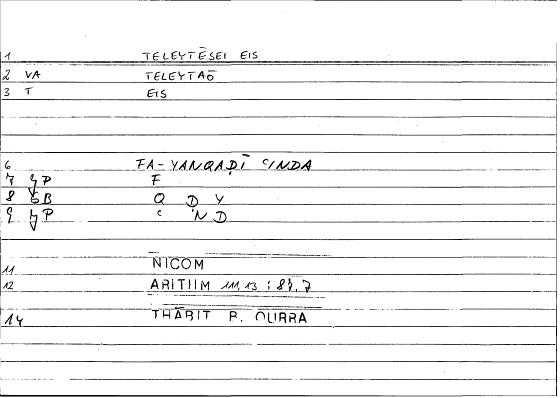 1 TELEYTĒSEI EIS
2 VA TELEYTAŌ
3 T EIS
6 FA-YANQAḌĪ ʿINDA
7 P F
8 B Q Ḍ Y
9 P ʿ N D
11 NICOM
12 ARITIIM 111,13 : 87,7
14 THĀBIT B. QURRA